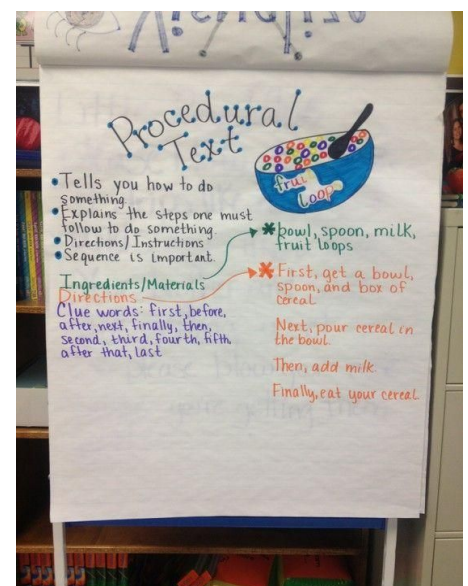 Visualize
Procedural
Text
fruit
loop
Tells you how to do
something.
Explains the steps one must
follow to do something.
Directions/Instructions
Sequence is important.
Ingredients/Materials
Directions
Clue words: first, before,
after, next, finally, then,
second, third, fourth, fifth
after that, last
bowl, spoon, milk,
fruit loops
First, get a bowl,
spoon, and box of
cereal
Next, pour cereal in
the bowl.
Then, add milk.
Finally, eat your cereal